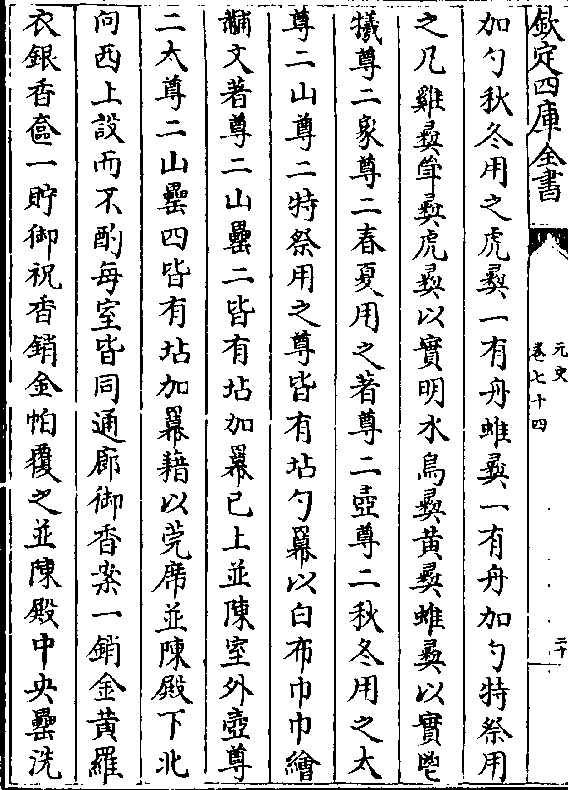 欽定四庫全書
元史
卷七十四
二十
加勺秋冬用之虎彝一有舟蜼彝一有舟加勺特祭用
之凡雞彝斝彝虎彝以實明水鳥彝黄彝蜼彝以實鬯
犠尊二象尊二春夏用之著尊二壺尊二秋冬用之太
尊二山尊二特祭用之尊皆有坫勺羃以白布巾巾繪
黼文著尊二山罍二皆有坫加羃已上並陳室外壺尊
二太尊二山罍四皆有坫加羃藉以莞席並陳殿下北
向西上設而不酌每室皆同通廊御香案一銷金黄羅
衣銀香奩一貯御祝香銷金帕覆之並陳殿中央罍洗